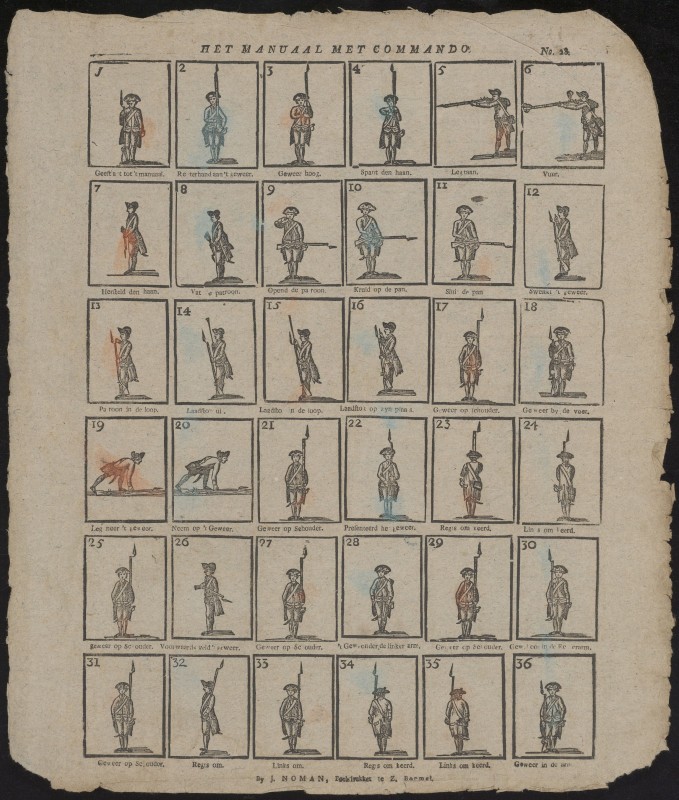 HET MANUAAL MET COMMANDO.
No. 28.
1 2 3 4 5 6
Geeft a t tot 't manuaal. Rechterhand aan 't geweer. Geweer hoog. Spant den haan. Leg aan. Vuur.
7 8 9 10 11 12
Herstield den haan. Vat de patroon. Opend de patroon. Kruid op de pan. Sluit de pan Swenkt 't geweer.
13 14 15 16 17 18
Patroon in de loop. Laadstok uit. Laadstok in de loop. Laadstok op zyn plaats. Geweer op schouder. Geweer by de voet.
19 20 21 22 23 24
Leg neer 't geweer. Neem op 't Geweer. Geweer op Schouder. Presenteerd het geweer. Regts om keerd. Links om keerd.
25 26 27 28 29 30
geweer op Schouder. Voorwaards veld 't geweer. Geweer op Schouder. 't Gew. onder de linker arm. Geweer op Schouder. Geweer in de
31 32 33 34 35 36
Geweer op Schouder. Regts om. Links om. Regts om keerd. Links om keerd. Geweer in de arm.
By J. NOMAN, Boekdrukker te Z. Boemel.